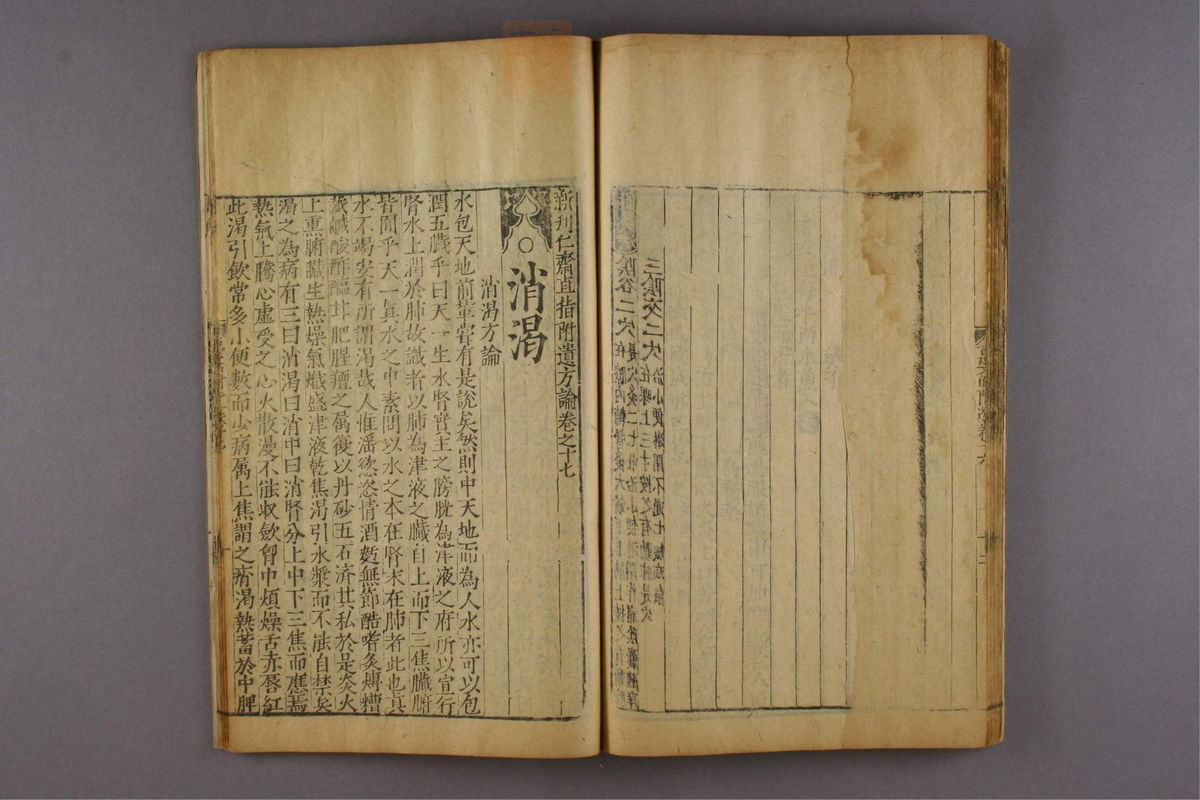 三陰交二穴 治小便淋閉不通七
在踝上三寸按之有動脉是穴
陰谷二穴
新刊仁齋直指附遺方論卷之十七
消渴
消渴方論
水包天地前輩嘗有是說矣然則中天地而為人水亦可以包
潤五臟乎曰天一生水腎實主之膀胱為津液之府所以宣行
腎水上潤於肺故識者以肺為津液之臟自上而下三焦臟腑
皆囿乎天一真水之中素問以水之本在腎末在肺者此也真
水不竭安有所謂渴哉人惟滛慾恣情酒麪無節酷嗜炙煿糟
藏鹹酸酢醢甘肥腥羶之属復以丹砂五石濟其私於是炎火
上熏腑臟生熱燥氣熾盛津液乾焦渴引水漿而不能自禁矣
渴之為病有三曰消渴曰消中曰消腎分上中下三焦而應焉
熱氣上騰心虛受之心火散漫不能収斂胷中煩燥舌赤唇紅
此渴引飲常多小便數而少病属上焦謂之痟渴熱蓄於中脾